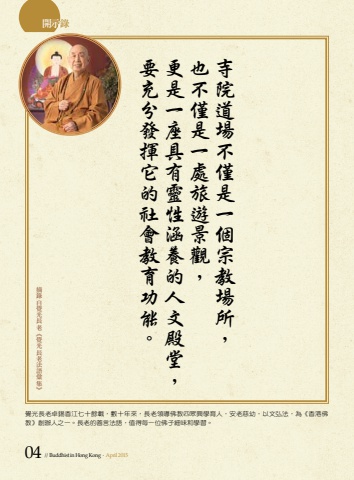 開示錄
寺院道場不僅是一個宗教場所，
也不僅是一處旅遊景觀，
更是一座具有靈性涵養的人文殿堂，
要充分發揮它的社會教育功能。
摘錄自覺光長老《覺光長老法語墨集》
覺光長老卓錫香江七十餘載，數十年來，長老領導佛教四眾興學育人、安老慈幼，以文弘法，為《香港佛
教》創辦人之一。長老的嘉言法語，值得每一位佛子細味和學習。
04 // Buddhist in Hong Kong · April 2015